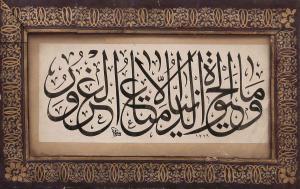 وما الحيوة الدنيا الا متاع الغرور